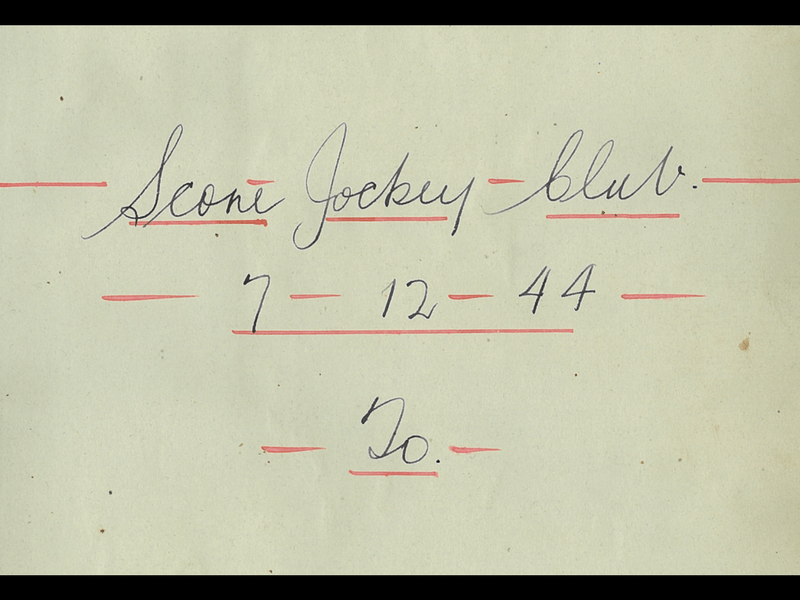 Scone Jockey Club.
7 - 12 - 44
To.